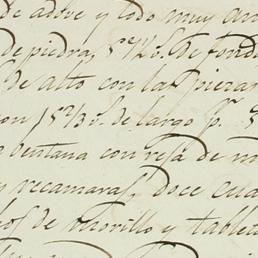 de adove y lodo muy an
de piedra, 5 vs 1/2 os. de fondo
de alto con las piezas
on 15 vs 1/3 os. de largo pr. 5
ventana con reja de m
y recamaras, doce cua
os de morillo y tableta